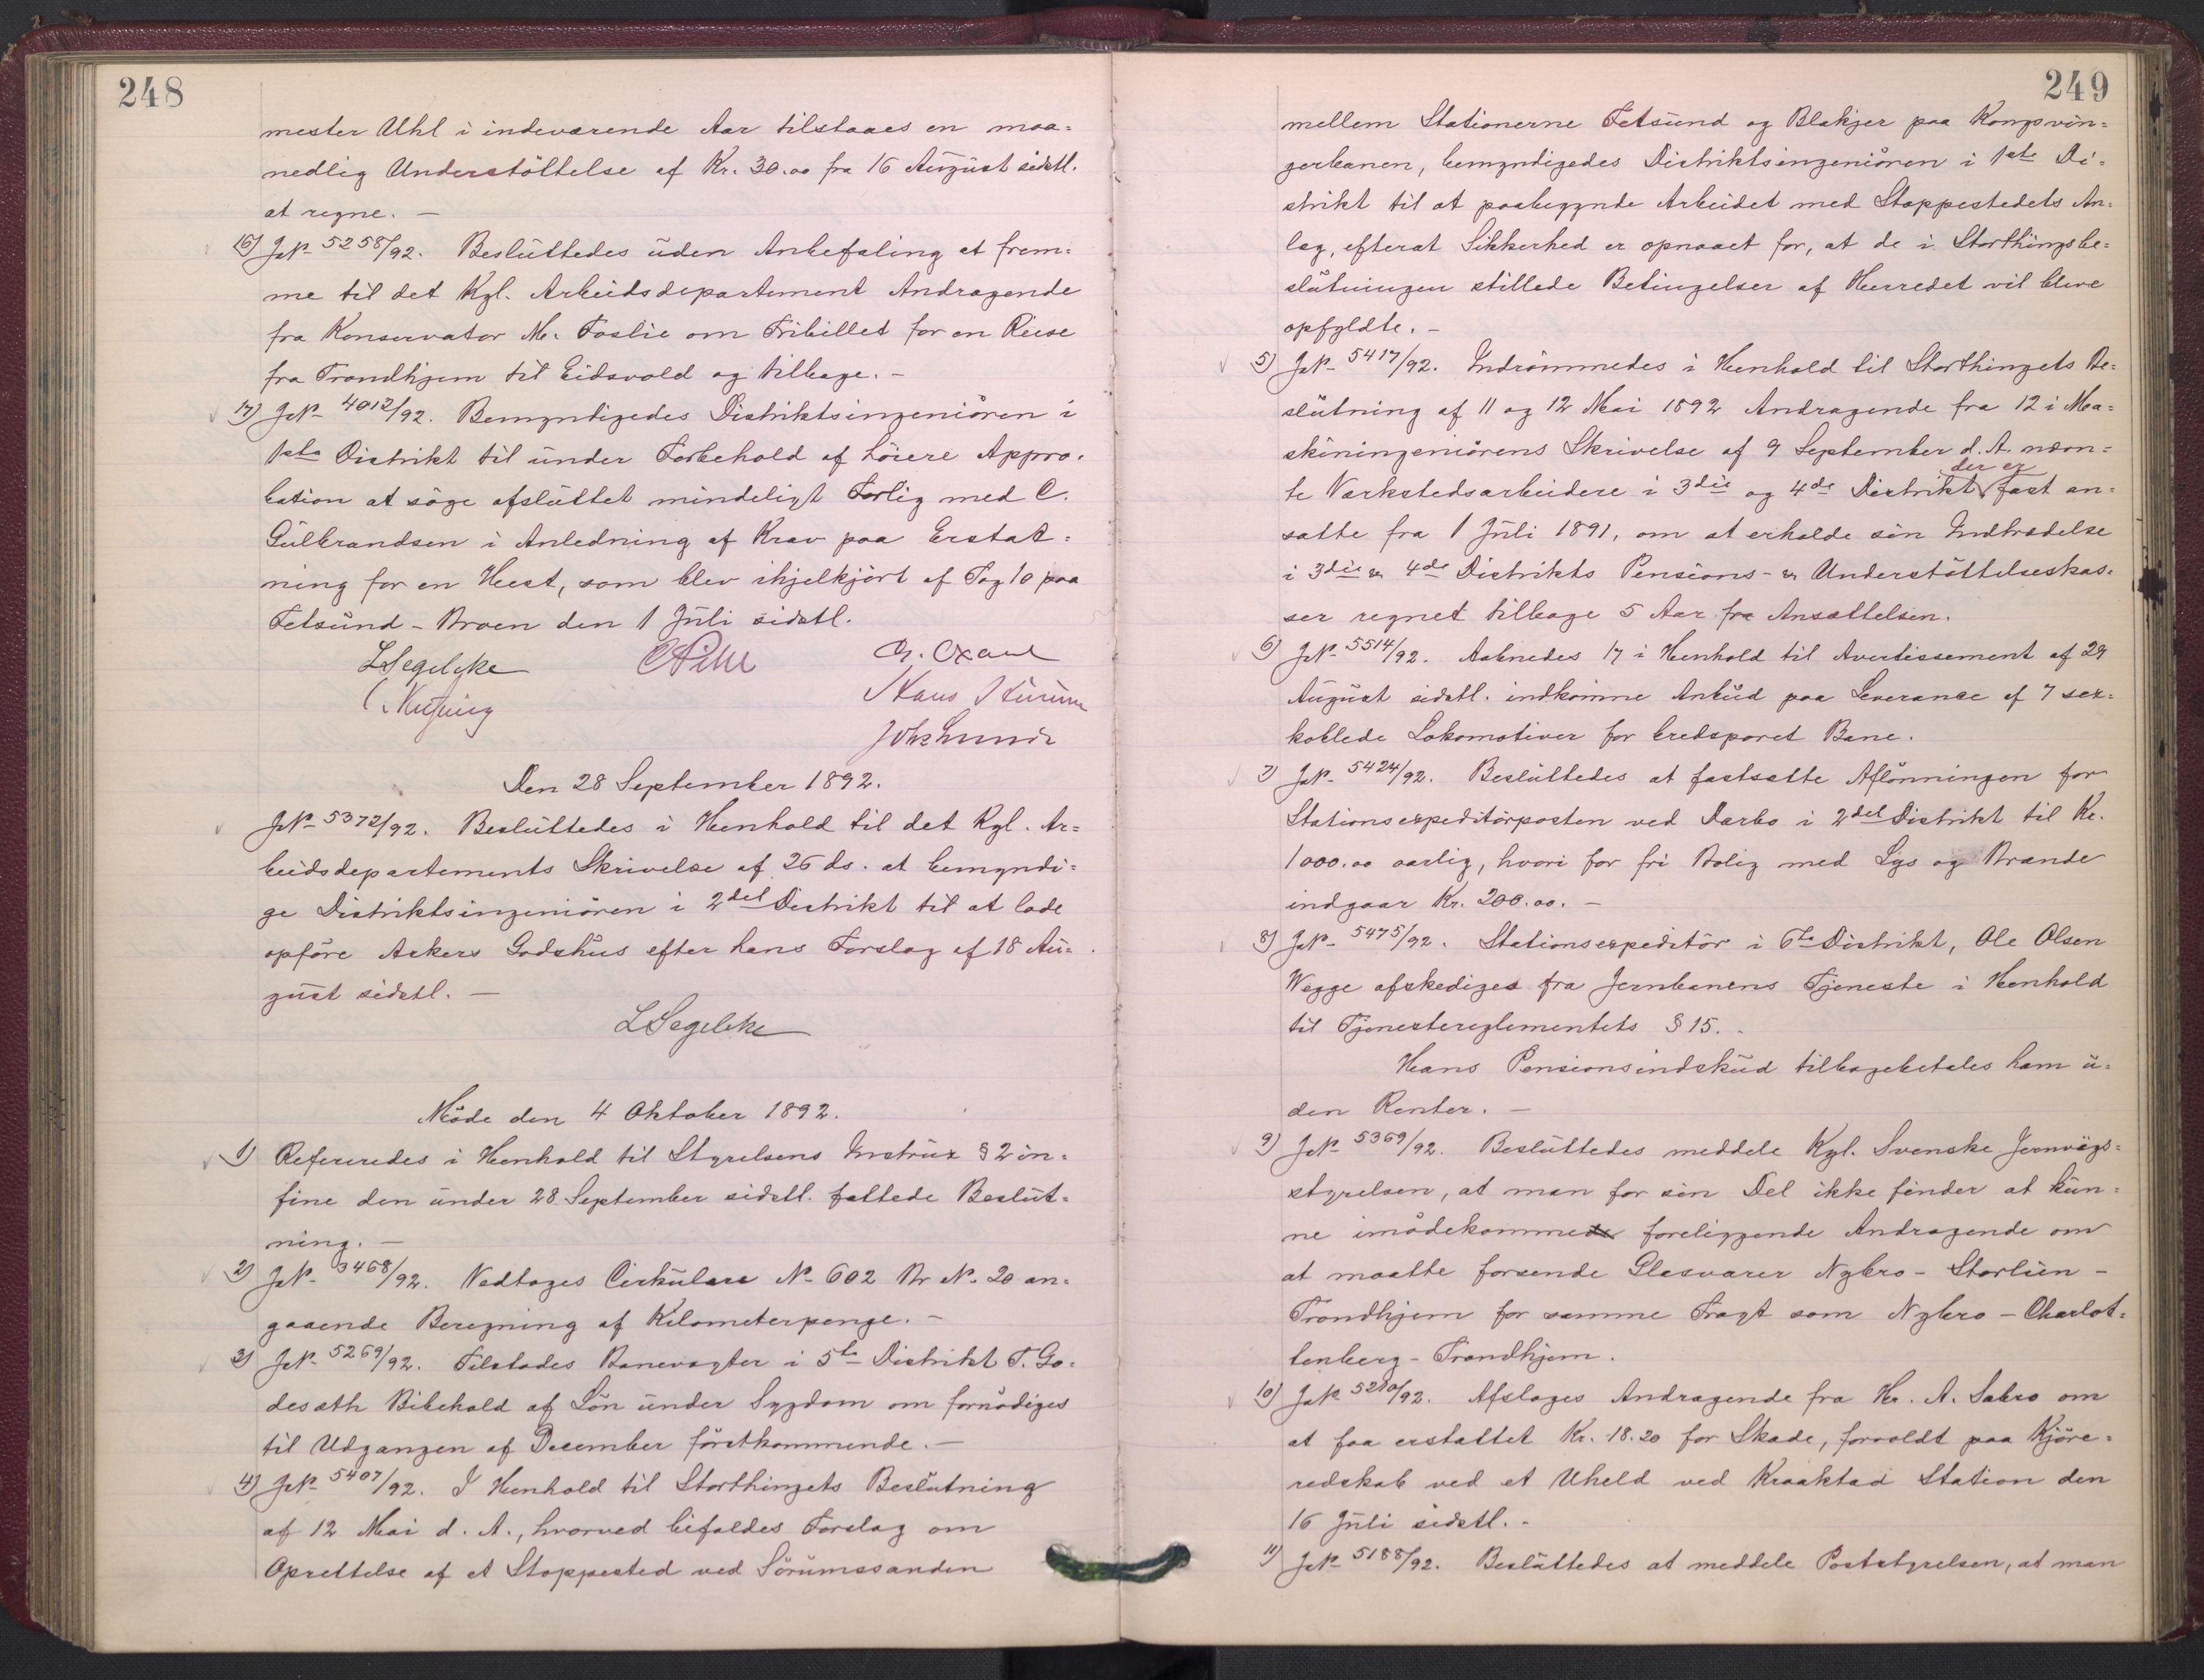 248
mester Uhl i indeværende Aar tilstaaes en maa=
nedlig Understöttelse af Kr. 30.00 fra 16 August sidstl.
at regne. —
16) JN- 5258/92. Besluttedes uden Anbefaling at frem=
me til det Kgl. Arbeidsdepartement Andragende
fra Konservator M. Foslie om Fribillet for en Reise
fra Trondhjem til Eidsvold og tilbage. —
17) JN- 4012/92. Bemyndigedes Distriktsingeniören i
1ste Distrikt til under Forbehold af höiere Appro=
bation at söge afsluttet mindeligt Forlig med C.
Gulbrandsen i Anledning af Krav paa Erstat=
ning for en Hest, som blev ihjelkjört af Tog 10 paa
Fetsund-Broen den 1 Juli sidstl.
LSegelcke CPihl
Den 28 September 1892.
JN- 5372/92. Besluttedes i Henhold til det Kgl. Ar=
beidsdepartements Skrivelse af 26 ds. at bemyndi=
ge Distriktsingeniören i 2det Distrikt til at lade
opföre Askers Godshus efter hans Forslag af 18 Au=
gust sidstl. —
LSegelcke
Möde den 4 Oktober 1892.
1) Refereredes i Henhold til Styrelsens Instrux § 2 in=
fine den under 28 September sidstl. fattede Beslut=
ning. —
2) JN- 3468/92. Vedtoges Cirkulære N- 602 Br N- 20 an=
gaaende Beregning af Kilometerpenge. —
3) JN- 5269/92. Tilstodes Banevogter i 5te Distrikt T. Go=
desæth Bibehold af Lön under Sygdom om fornödiges
til Udgangen af December förstkommende. —
4) JN- 5407/92. I Henhold til Storthingets Beslutning
af 12 Mai d. A., hvorved bifaldes Forslag om
Oprettelse af et Stoppested ved Sörumssanden
249
mellem Stationerne Fetsund og Blakjer paa Kongsvin=
gerbanen, bemyndigedes Distriktsingeniören i 1ste Di=
strikt til at paabegynde Arbeidet med Stoppestedets An=
læg, efterat Sikkerhed er opnaaet for, at de i Storthingsbe=
slutningen stillede Betingelser af Herredet vil blive
opfyldte. —
5) JN- 5417/92. Indrömmedes i Henhold til Storthingets Be=
slutning af 11 og 12 Mai 1892 Andragende fra 12 i Ma=
skiningeniörens Skrivelse af 9 September d. A. nævn=
te Værkstedsarbeidere i 3die og 4de Distrikt der er fast an=
satte fra 1 Juli 1891, om at erholde sin Indtrædelse
i 3die & 4de Distrikts Pensions- & Understöttelseskas=
ser regnet tilbage 5 Aar fra Ansættelsen.
6) JN- 5514/92. Aabnedes 17 i Henhold til Avertissement af 29
August sidstl. indkomne Anbud paa Leverance af 7 sex=
koblede Lokomotiver for bredsporet Bane.
7) JN- 5424/92. Besluttedes at fastsætte Aflönningen for
Stationsexpeditörposten ved Darbo i 2det Distrikt til Kr.
1000.00 aarlig, hvori for fri Bolig med Lys og Brænde
indgaar Kr. 200.00. —
8) JN- 5475/92. Stationsexpeditör i 6te Distrikt, Ole Olsen
Wegge afskediges fra Jernbanens Tjeneste i Henhold
til Tjenestereglementets § 15. -
Hans Pensionsindskud tilbagebetales ham u=
den Renter. —
9) JN- 5369/92. Besluttedes meddele Kgl. Svenske Jernvägs=
styrelsen, at man for sin Del ikke finder at kun=
ne imödekomme foreliggende Andragende om
at maatte forsende Glasvarer Nybro - Storlien -
Trondhjem for samme Fragt som Nybro - Charlot=
tenberg - Trondhjem.
10) JN- 5210/92. Afsloges Andragende fra Hr. A. Sabro om
at faa erstattet Kr. 18.20 for Skade, forvoldt paa Kjöre=
redskab ved et Uheld ved Kraakstad Station den
16 Juli sidstl. -
11) JN- 5188/92. Besluttedes at meddele Poststyrelsen, at man